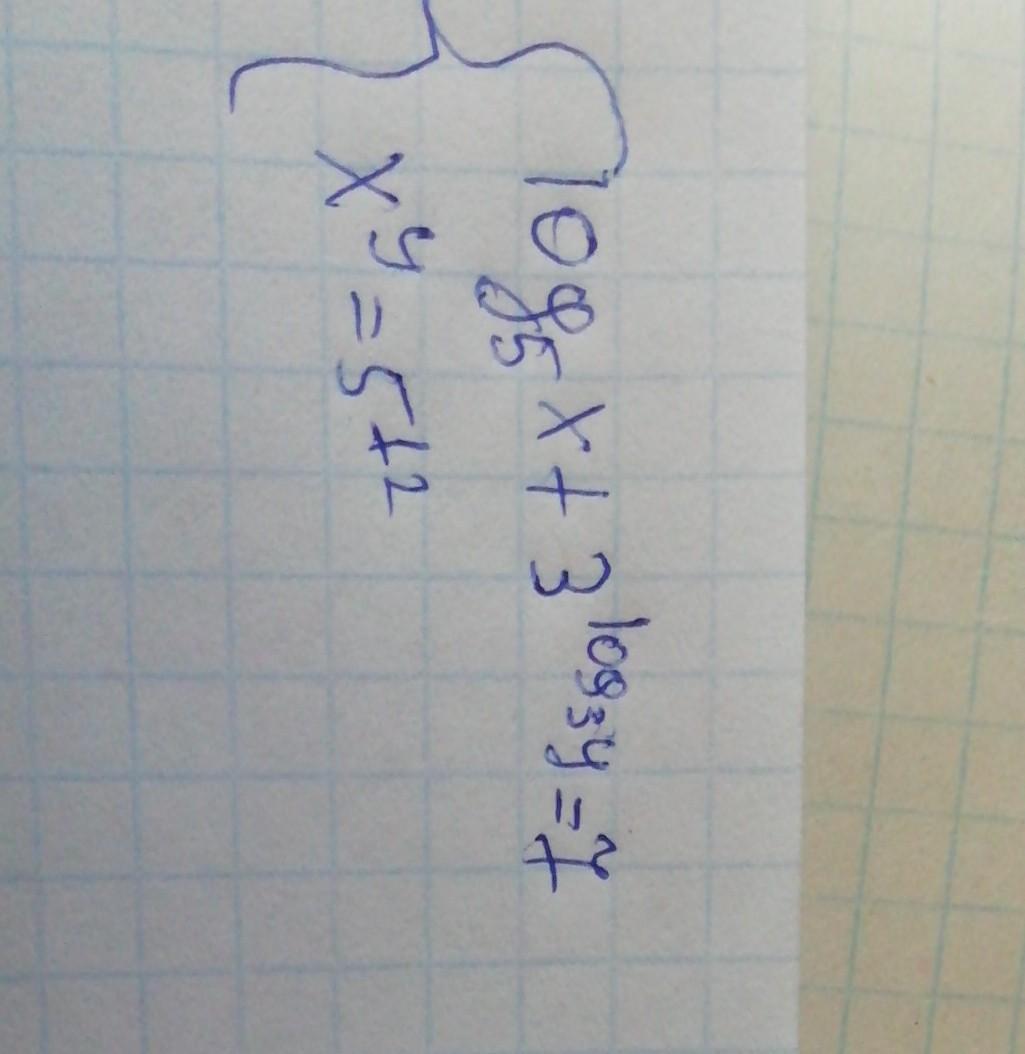 log₅x + 3^log₃y = 7
x^y = 5^12